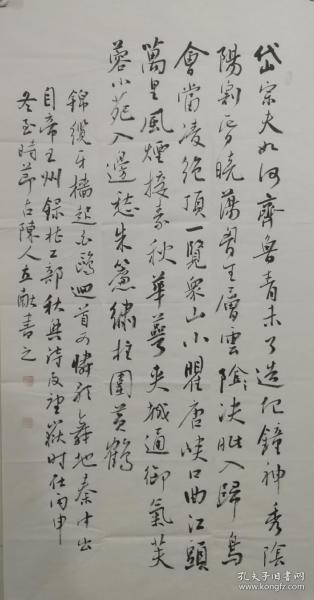 岱宗夫如何齊魯青未了造化鐘神秀陰
陽割昏曉蕩胸生層雲陰決眦入歸鳥
會當凌絶頂一覽衆山小瞿唐峡口曲江頭
萬里風煙接素秋華萼夹城通御氣芙
蓉小苑入邊愁朱簾繡柱圍黄鶴
錦纜牙檣起白鷗迴首可憐歌舞地秦中出
自帝王州録杜工部秋興詩及望嶽时在丙申
冬至時節古陳人 書之
孔夫子旧书网